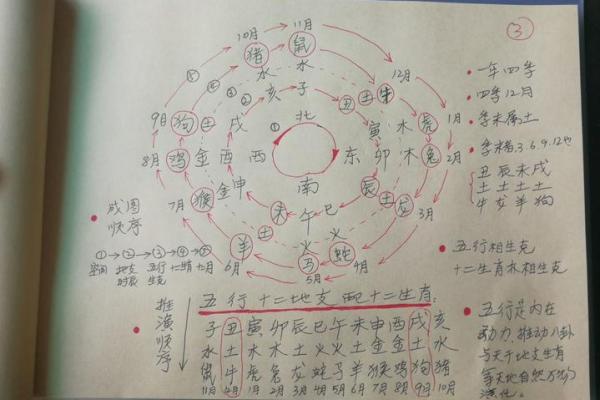 ③
10月 11月
猪 鼠
水 水
亥 子
12月
丑 土 牛
9月 狗 土 戌
北
①
②
③
④
⑤
寅 木 虎 1月
8月 鸡 金 酉 西
东 卯 木 兔 2月
南
7月 猴 金 申
辰 土 龙 3月
未 土 羊 6月
午 巳
火 火
马 蛇
5月 4月
• 一年四季
• 四季12月
• 季末属土
• 季末指3.6.9.12也
丑 辰 未 戌
土 土 土 土
牛 龙 羊 狗
• 五行相生克
十二生肖亦相生克
• 五行是内在
动力,推动八卦
与天干地支生肖
等天地自然万物
演化。
• 成图
顺序
①→②→③→④→⑤
空间 地支 五行 十二肖 十二月
时辰 生克
推演顺序
五行十二地支配十二生肖:
子丑寅卯辰巳午未申酉戌亥
水土木木土火火土金金土水
鼠牛虎兔龙蛇马羊猴鸡狗猪
11月 12月 1月 2月 3月 4月 5月 6月 7月 8月 9月 10月